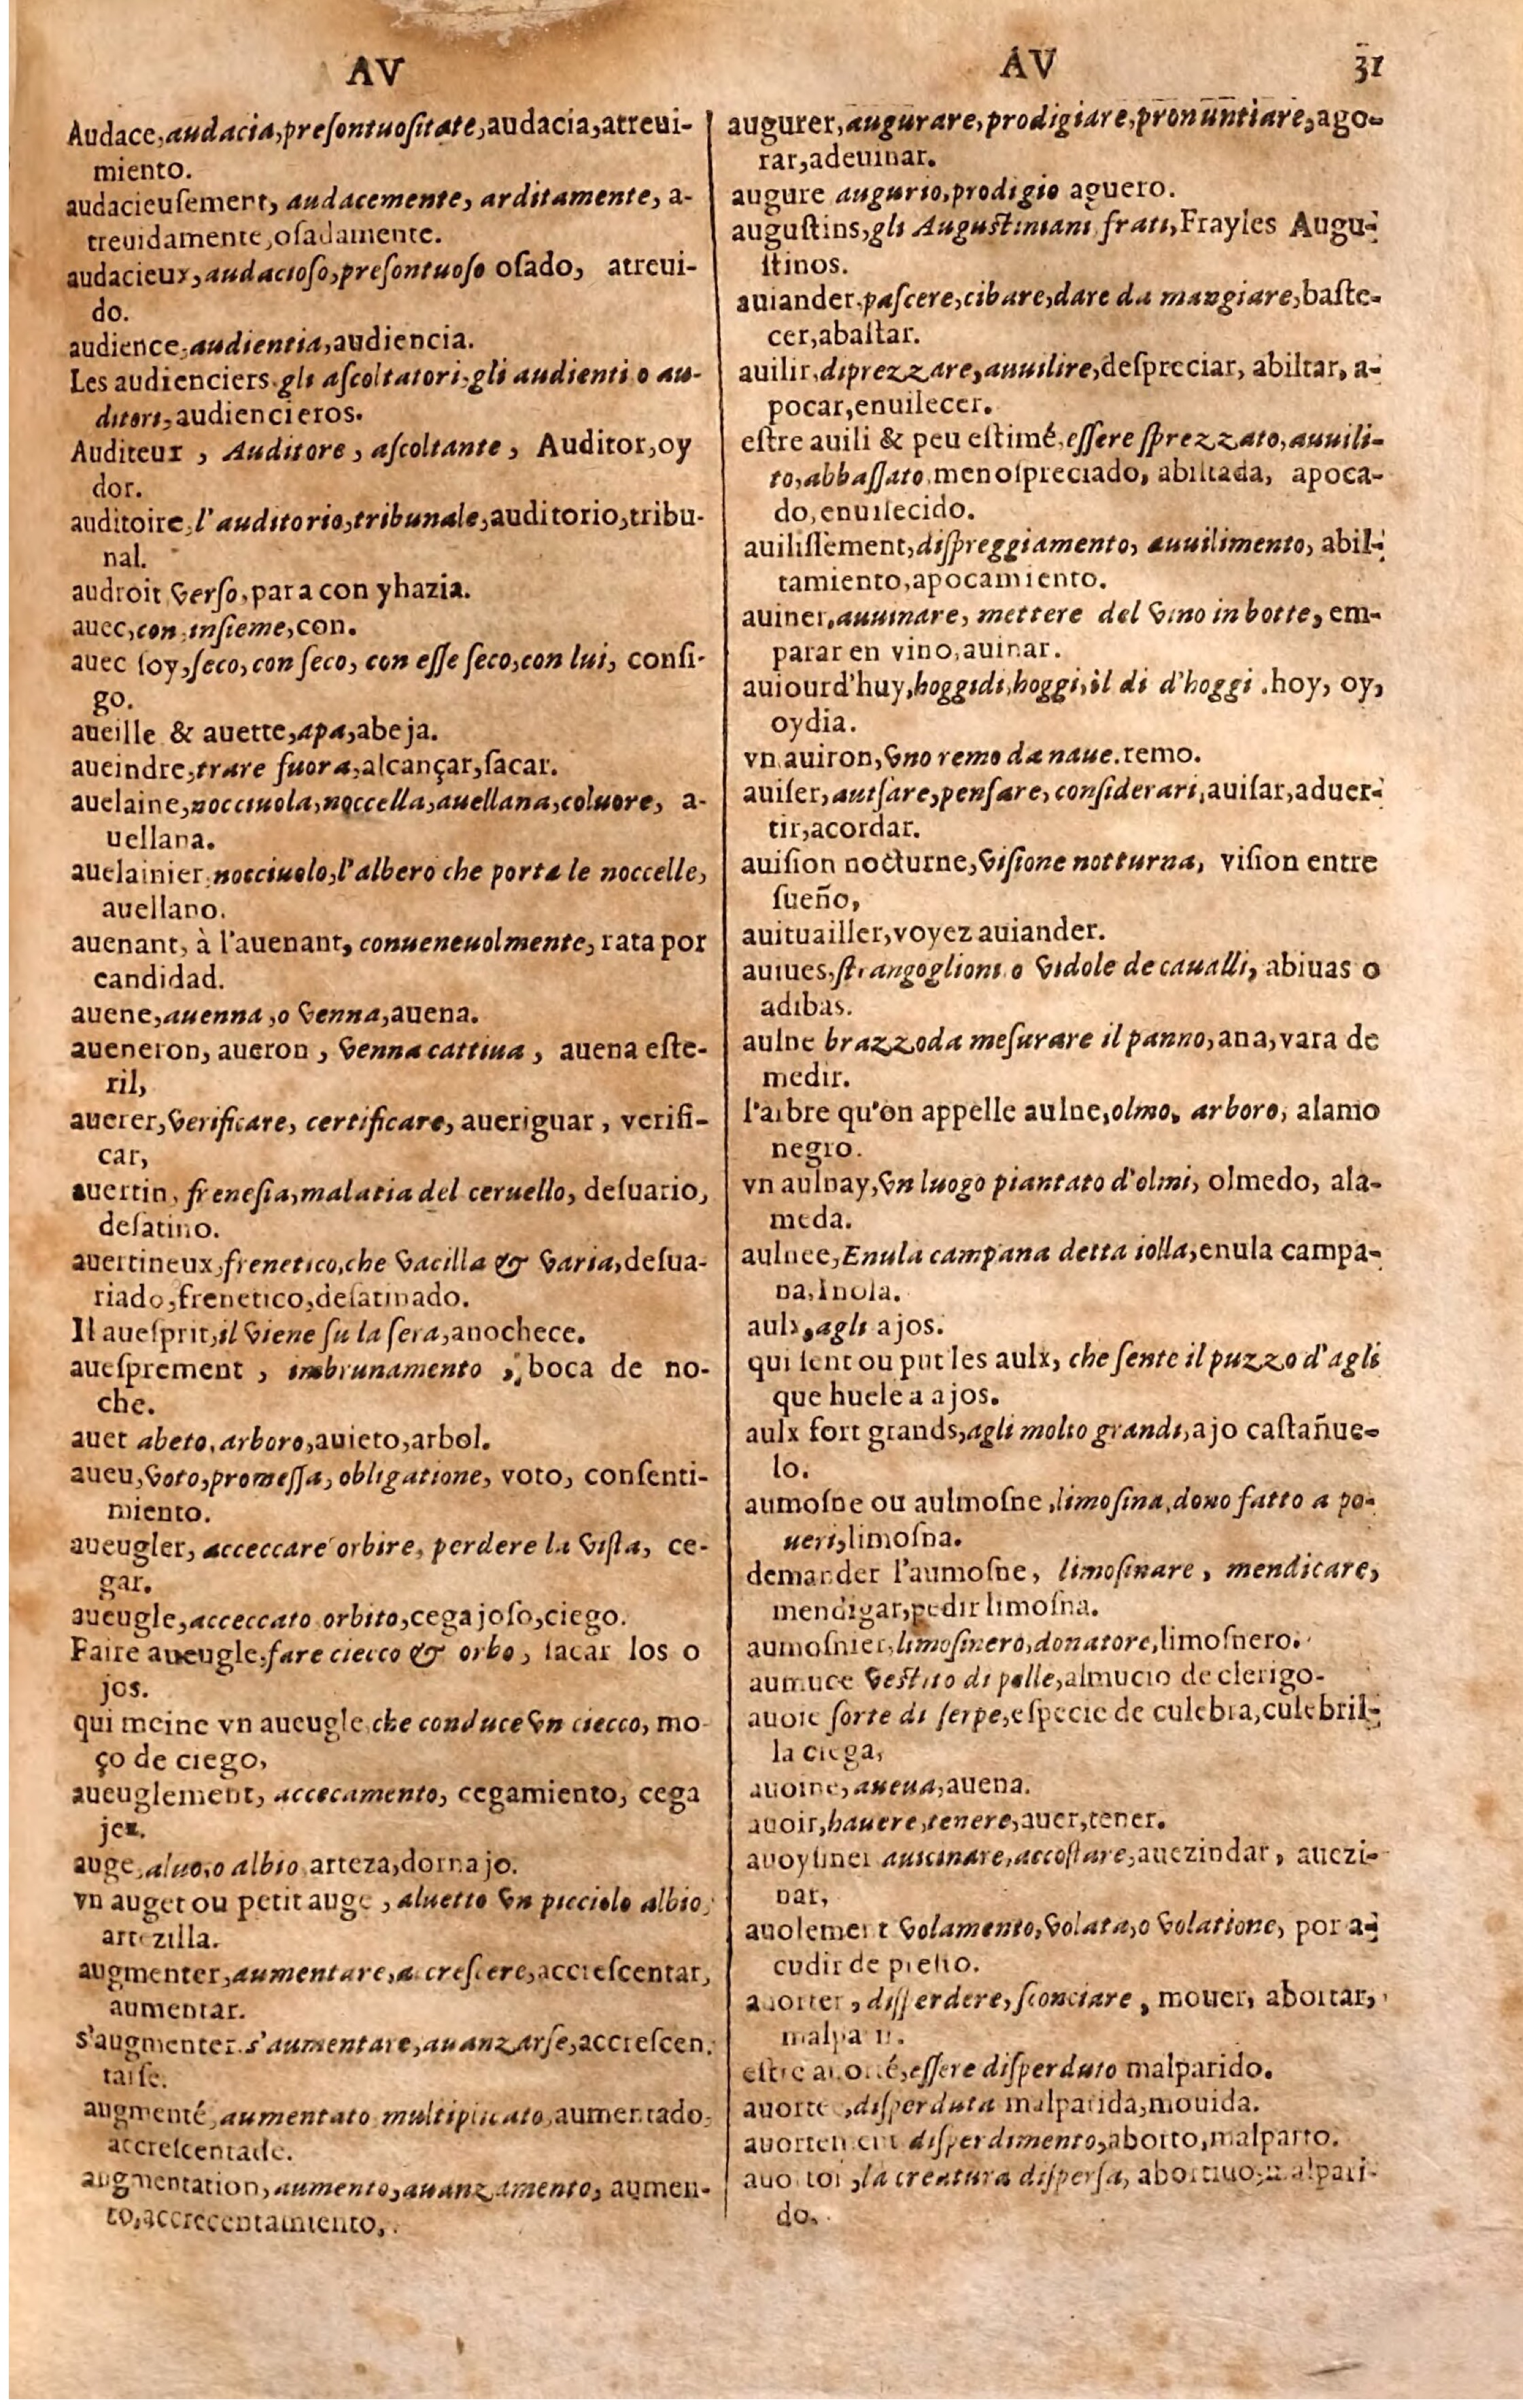 AV
Audace, audacia, preſontuoſitate, audacia, atreui-
miento.
audacieuſement, audacemente, arditamente, a-
treuidamente, oſadamente.
audacieux, audacioso, preſontuoſo oſado, atreui-
do.
audience, audientia, audiencia.
Les audienciers. gli aſcoltatori, gli audienti o au-
ditori, audiencieros.
Auditeur , Auditore , aſcoltante , Auditor, oy
dor.
auditoire, l'auditorio, tribunale, auditorio, tribu-
nal.
audroit verſo, para con yhazia.
auec, con, inſieme, con.
auec ſoy, ſeco, con ſeco, con eſſe ſeco, con lui, conſi-
go.
aueille & auette, apa, abeja.
aueindre, trare fuora, alcançar, ſacar.
auelaine, nocciuola, noccella, auellana, coluore, a-
uellana.
auelainier, nocciuolo, l'albero che porta le noccelle,
auellano.
auenant, à l'auenant, conueneuolmente, rata por
candidad.
auene, auenna, o venna, auena.
aueneron, aueron , venna cattiua , auena eſte-
ril,
auerer, verificare, certificare, aueriguar , verifi-
car,
auertin, freneſia, malatia del ceruello, deſuario,
deſatino.
auertineux, frenetico, che vacilla & varia, deſua-
riado, frenetico, deſatinado.
Il aueſprit, il viene ſu la ſera, anochece.
aueſprement , imbrunamento , boca de no-
che.
auet abeto, arboro, auieto, arbol.
aueu, voto, promeſſa, obligatione, voto, conſenti-
miento.
aueugler, acceccare orbire, perdere la viſta, ce-
gar.
aueugle, acceccato orbito, cegajoſo, ciego.
Faire aueugle, fare ciecco & orbo, ſacar los o
jos.
qui meine vn aueugle, che conduce vn ciecco, mo
ço de ciego,
aueuglement, accecamento, cegamiento, cega
jez.
auge, aluo, o albio arteza, dornajo.
vn auget ou petit auge , aluetto vn picciolo albio,
artezilla.
augmenter, aumentare, accreſcere, accreſcentar,
aumentar.
s'augmenter. s'aumentare, auanzarſe, accreſcen
tarſe.
augmenté, aumentato multiplicato, aumentado,
accreſcentade.
augmentation, aumento, auanzamento, aumen-
to, accrecentamiento,
AV 31
augurer, augurare, prodigiare, pronuntiare, ago-
rar, adeuinar.
augure augurio, prodigio aguero.
auguſtins, gli Auguſtiniani frati, Frayles Augu-
ſtinos.
auiander, paſcere, cibare, dare da mangiare, baſte-
cer, abaſtar.
auilir, diprezzare, auuilire, deſpreciar, abiltar, a-
pocar, enuilecer.
eſtre auili & peu eſtimé, eſſere ſprezzato, auuili-
to, abbaſſato, menoſpreciado, abiltada, apoca-
do, enuilecido.
auiliſſement, diſpreggiamento, auuilimento, abil-
tamiento, apocamiento.
auiner, auuinare, mettere del vino in botte, em-
parar en vino, auinar.
auiourd'huy, hoggidi, hoggi, il di d'hoggi . hoy, oy,
oydia.
vn auiron, vno remo da naue. remo.
auiſer, auiſare, penſare, conſiderari, auiſar, aduer-
tir, acordar.
auiſion nocturne, viſione notturna, viſion entre
ſueño,
auituailler, voyez auiander.
auiues, ſtrangoglioni o vidole de caualli, abiuas o
adibas.
aulne brazzoda meſurare il panno, ana, vara de
medir.
l'arbre qu'on appelle aulne, olmo, arboro, alamo
negro.
vn aulnay, vn luogo piantato d'olmi, olmedo, ala-
meda.
aulnee, Enula campana detta iolla, enula campa-
na, Inola.
aulx, agli ajos.
qui ſent ou put les aulx, che ſente il puzzo d'agli
que huele a ajos.
aulx fort grands, agli molto grandi, ajo caſtañue-
lo.
aumoſne ou aulmoſne, limoſina, dono fatto a po-
ueri, limoſna.
demander l'aumoſne, limoſinare , mendicare,
mendigar, pedir limoſna.
aumoſnier, limoſinero, donatore, limoſnero.
aumuce veſtito di pelle, almucio de clerigo-
auoie ſorte di ſerpe, eſpecie de culebra, culebril-
la ciega,
auoine, aueua, auena.
auoir, hauere, tenere, auer, tener.
auoyſiner auicinare, accoſtare, auezindar , auezi-
nar,
auolement volamento, volata, o volatione, por a-
cudir de preſto.
auorter , diſperdere, ſconciare , mouer, abortar,
malparir.
eſtre auorté, eſſere diſperduto malparido.
auortee, diſperduta malparida, mouida.
auortement diſperdimento, aborto, malparto.
auorton, la creatura diſperſa, abortiuo, malpari-
do.